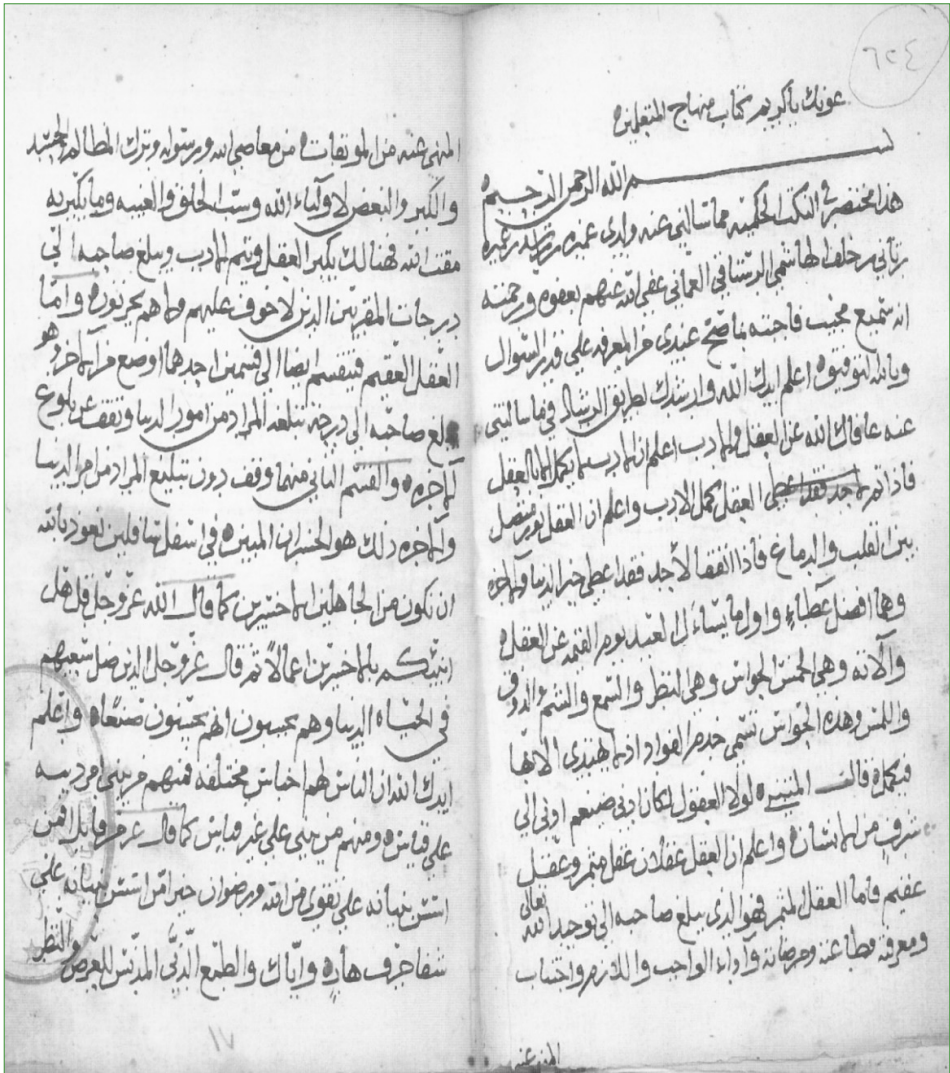 ٦٢٤
عونك يا كريم كتاب منهاج المتعلمين
بسم الله الرحمن الرحيم
هذا مختصر في النكت الحكمية مما سالني عنه ولدي عميره
بن خلف الهاشمي الرستاقي العماني عفى الله عنهم بعفوه ورحمته
انه سميع مجيب فاجبته بما صح عندي من المعرفه على قدر السوال
وبالله التوفيق اعلم ايدك الله وارشدك لطريق الرشاد في ما سالتني
عنه عافاك الله عن العقل والادب اعلم ان الادب لا يكمل الا بالعقل
فاذا العقل كمل الادب واعلم ان العقل نور متصل
بين القلب والدماغ فاذا اتفقا لاحد فقد اعطي خير الدنيا والاخره
وهما افضل عطاء واول ما يساءل العبد يوم القيمه عن العقل
والاته وهي الخمس الحواس وهي النظر والسمع والشم والذوق
واللمس وهذه الحواس تسمى خدم الفواد اذ لا يهتدي الا بها
قال لولا العقول لكان ادنى ضيغم ادنى الى
شرف من الانسان واعلم ان العقل عقلان عقل مثمر وعقل
عقيم فاما العقل المثمر فهو الذي يبلغ صاحبه الى توحيد الله تعالى
ومعرفته وطاعته ومرضاته واداء الواجب واللازم واجتناب
المنهي عنه
المنهي عنه من الموبقات من معاصي الله ورسوله وترك المظالم والحسد
والكبر والبغض لاولياء الله وسب الخلق والغيبه وما يكبر به
مقت الله فهنالك يكبر العقل ويتم الادب ويبلغ صاحبه الى
درجات المقربين الذين لا خوف عليهم ولا هم يحزنون واما
العقل العقيم فينقسم ايضا الى قسمين احدهما اوضع من الاخر وهو
يبلغ صاحبه الى درجة تبلغه المراد من امور الدنيا وتقف عن بلوغ
الاخره والقسم الثاني منهما وقف دون تبليغ المراد من امر الدنيا
والاخره ذلك هو الخسران المبين في اسفل سافلين نعوذ بالله
ان نكون من الجاهلين الاخسرين كما قال الله عز وجل قل هل
انبئكم بالاخسرين اعمالا ثم قال عز وجل الذين ضل سعيهم
في الحياه الدنيا وهم يحسبون انهم يحسنون صنعا واعلم
ايدك الله ان الناس هم اجناس مختلفه فمنهم من يبني من دينه
على قياس ومنهم من يبني على غير قياس كما قال عز من قايل افمن
اسس بنيانه على تقوى من الله ورضوان خير امن اسس بنيانه على
شفا جرف هار واياك والطمع الدني المدنس للعرض والنظر
١٧